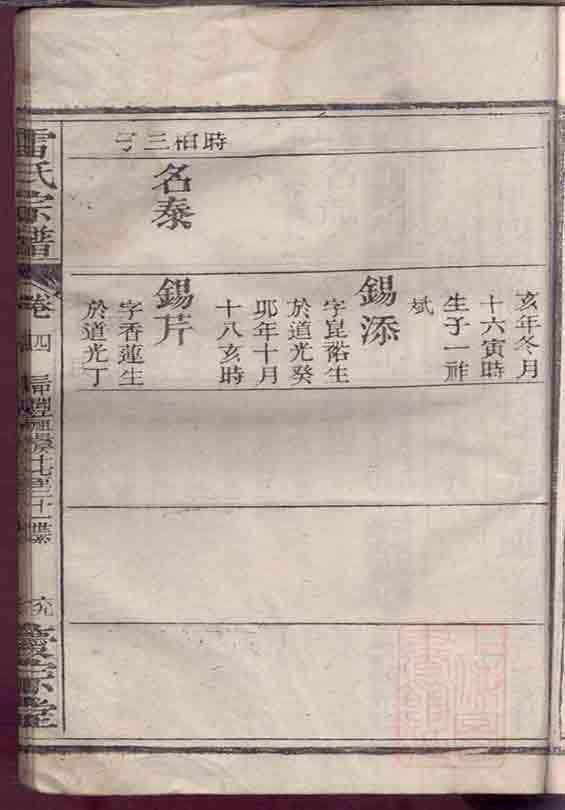 時相三子
名泰
亥年冬月
十六寅時
生子一祥
斌
錫添
字崑裕生
於道光癸
卯年十月
十八亥時
錫芹
字香蓮生
於道光丁
雷氏宗譜
卷四
慶宗堂